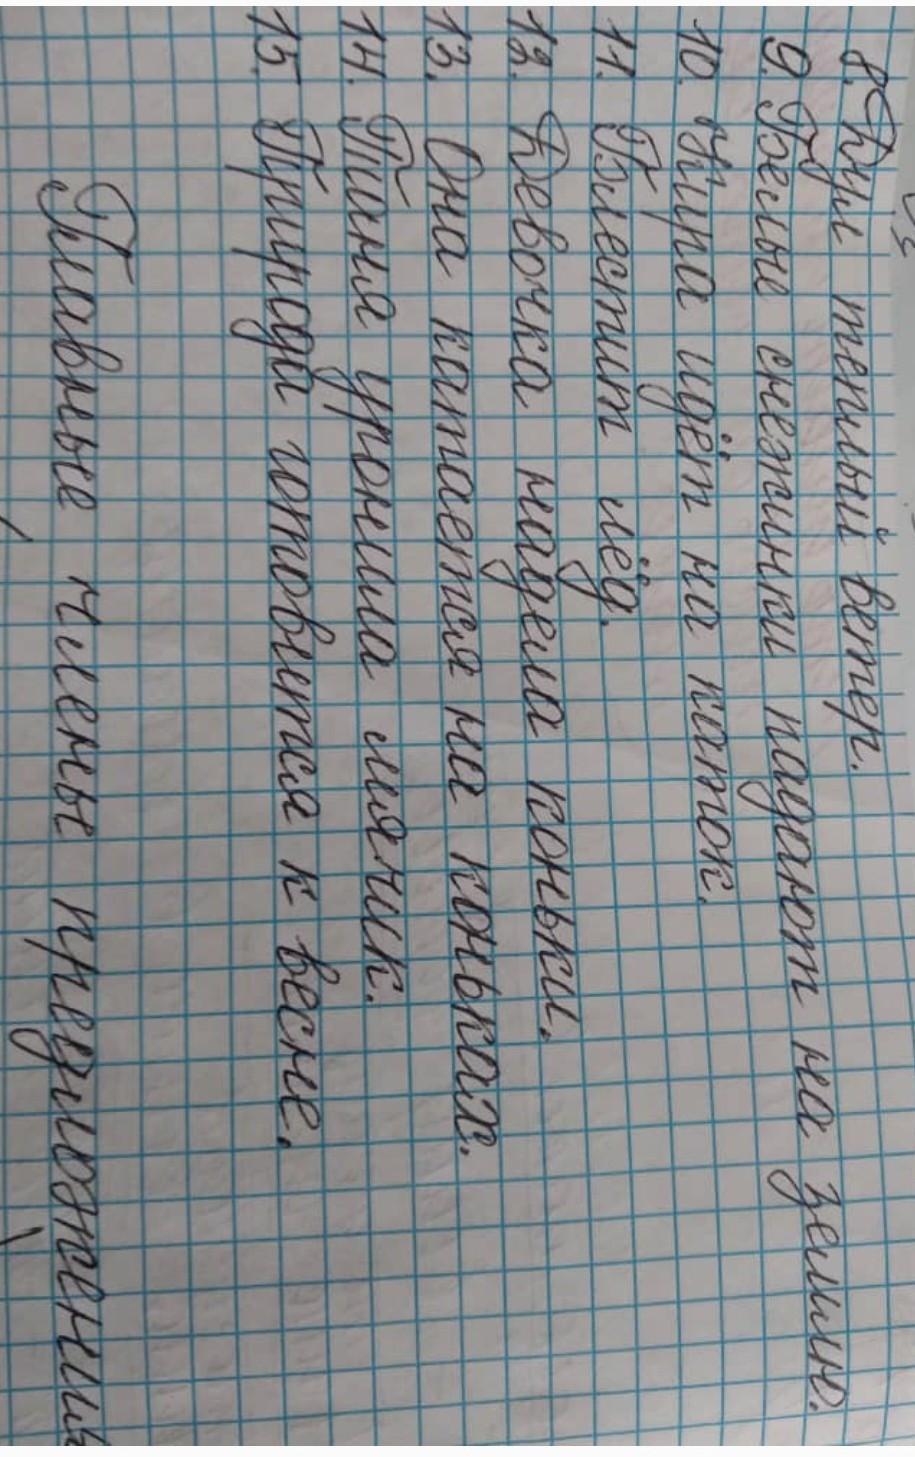 8. Дул теплый ветер.
9. Белые снежинки падают на землю.
10. Кира идёт на каток.
11. Блестит лёд.
12. Девочка надела коньки.
13. Она катается на коньках.
14. Таня уронила мячик.
15. Природа готовится к весне.
Главные члены предложения